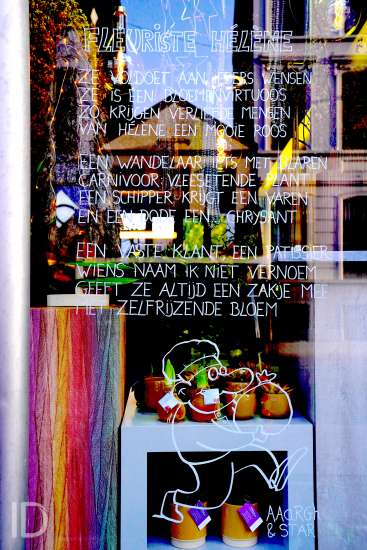 FLEURISTE HÉLÈNE
ZE VOLDOET AAN IEDERS WENSEN
ZE IS EEN BLOEMENVIRTUOOS
ZO KRIJGEN VERLIEFDE MENSEN
VAN HÉLÈNE EEN MOOIE ROOS
EEN WANDELAAR IETS MET BLAREN
CARNIVOOR VLEESETENDE PLANT
EEN SCHIPPER KRIJGT EEN VAREN
EN EEN DODE EEN CHRYSANT
EEN VASTE KLANT, EEN PATISSIER
WIENS NAAM IK NIET VERNOEM
GEEFT ZE ALTIJD EEN ZAKJE MEE
MET ZELFRIJZENDE BLOEM
AAARGH
& STAR
ID